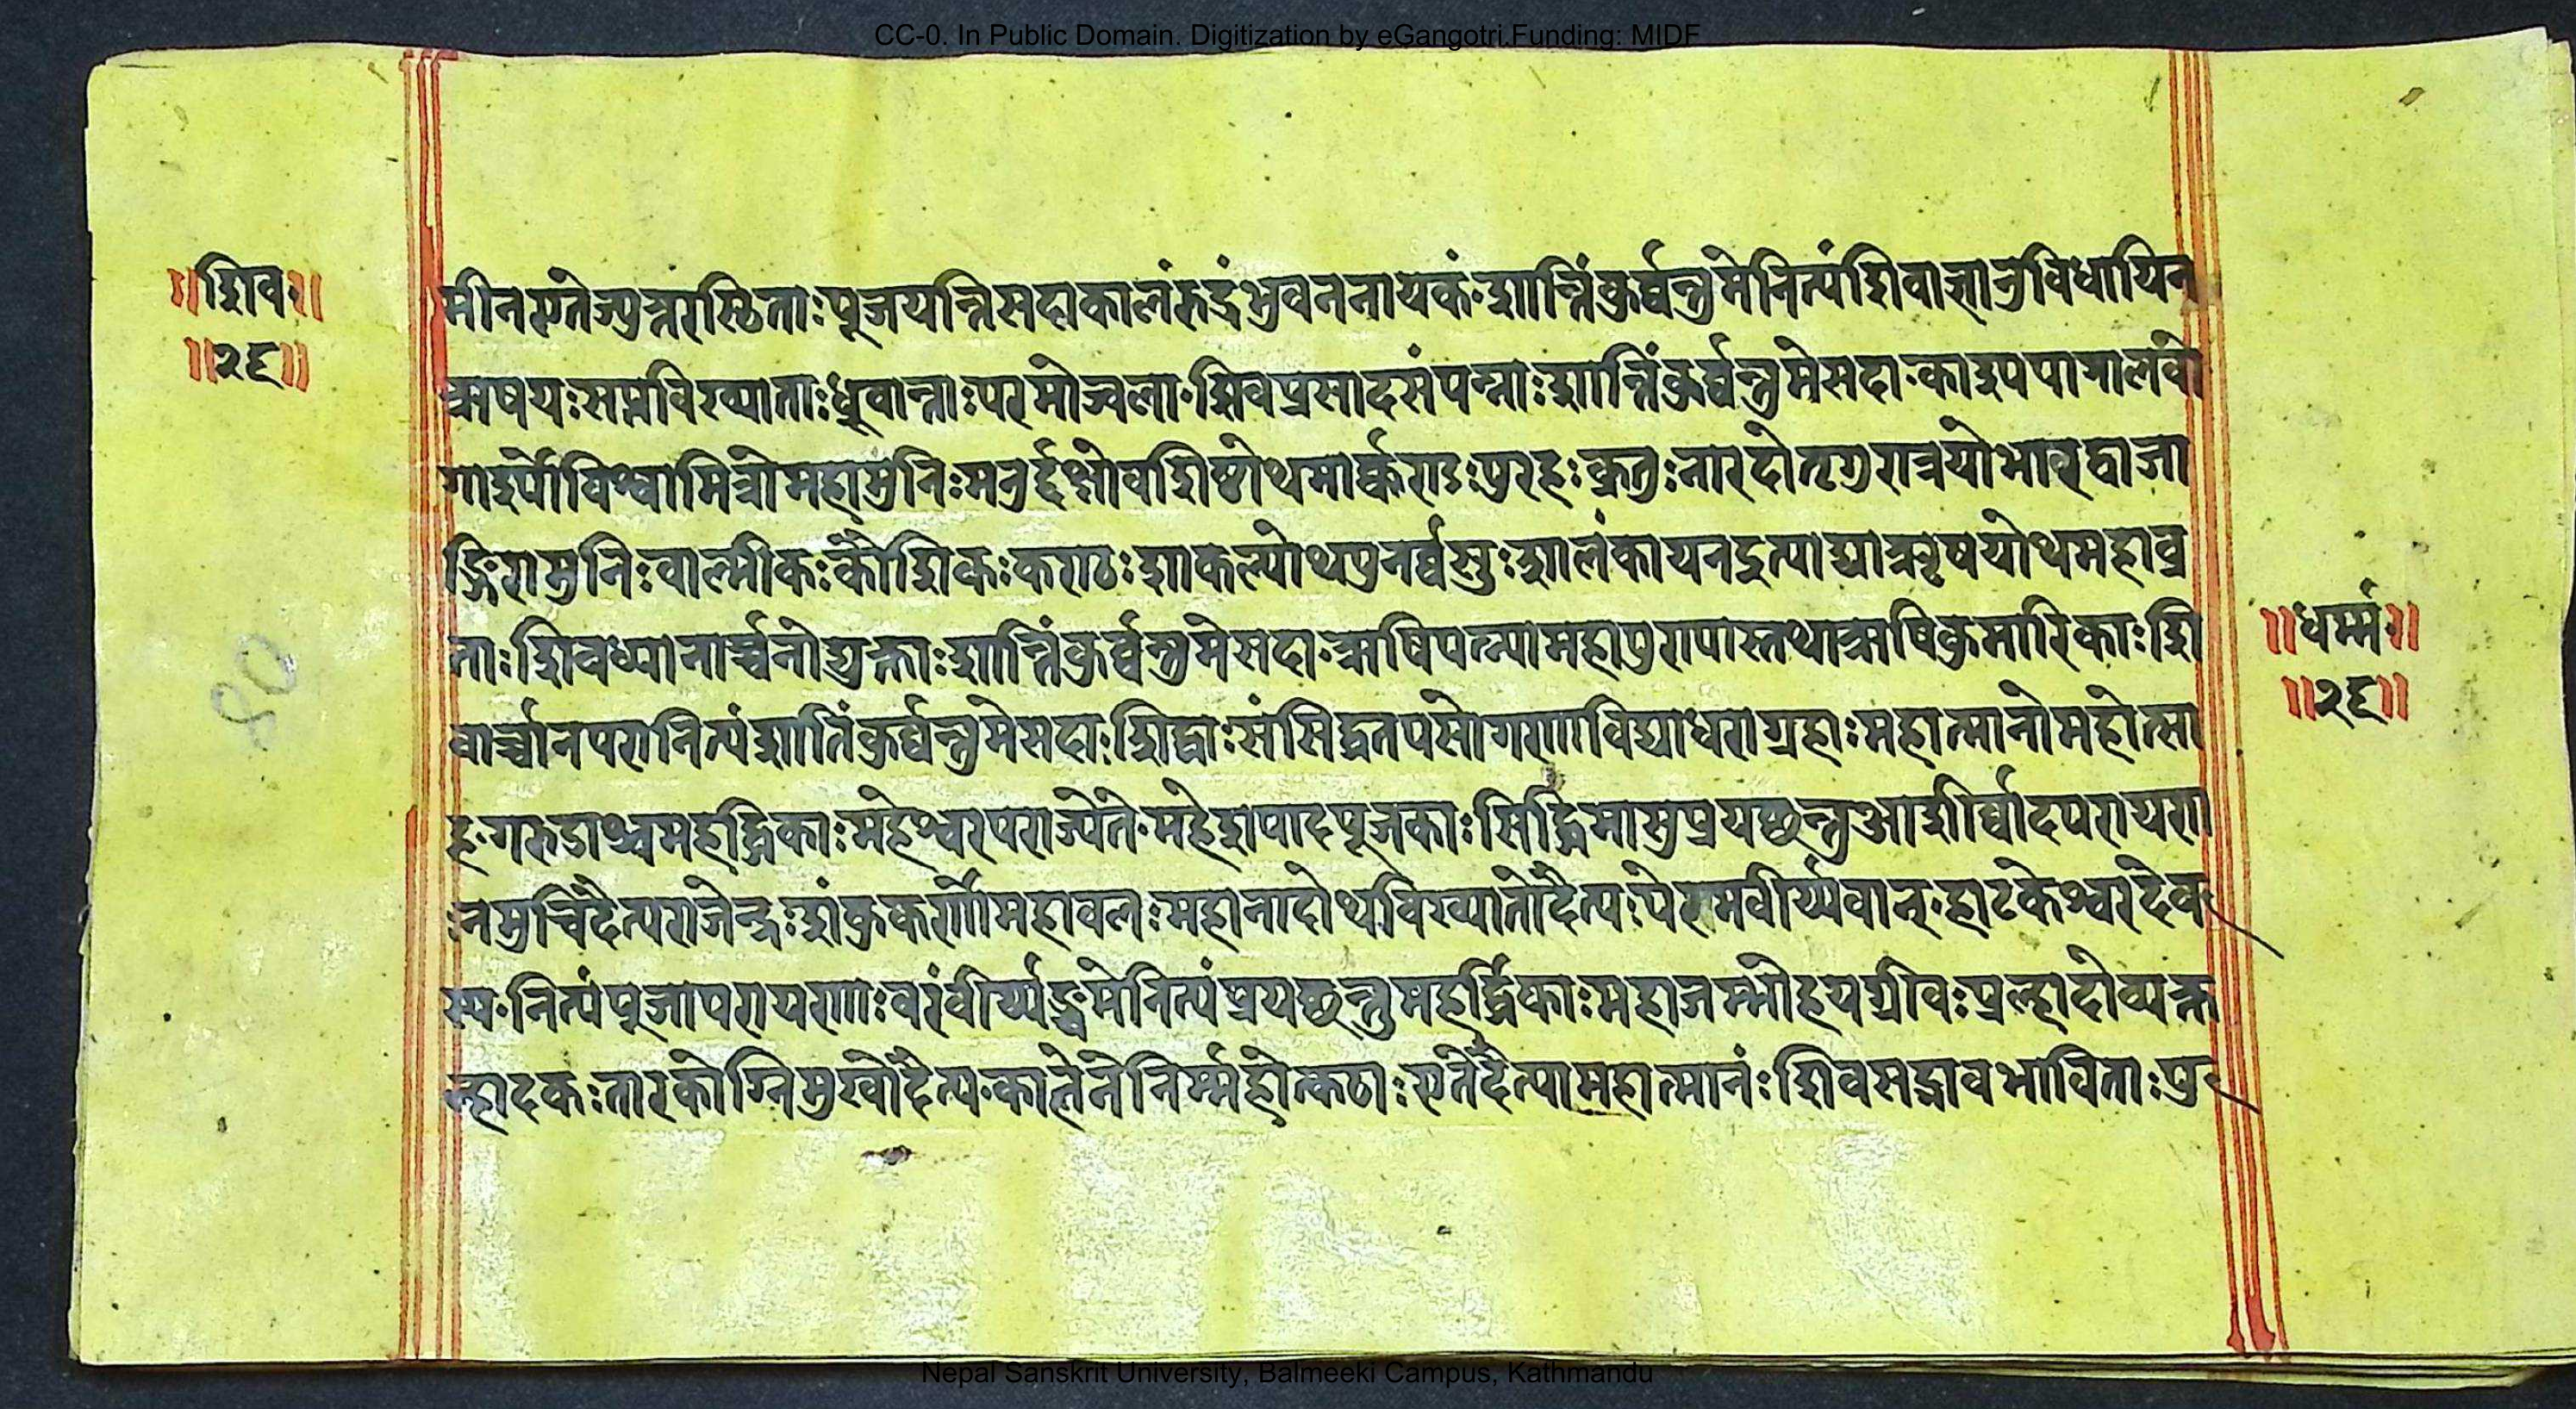 CC-0. In Public Domain. Digitization by eGangotri.Funding: MIDF
॥शिव॰॥
॥२६॥
मीनएतेज्युत्तरस्थिताःपूजयन्तिसदाकालंरुद्रंभुवननायकं॰शान्तिंकुर्व्वन्तुमेनित्यंशिवाज्ञानुविधायिन
ऋषयःसप्तविख्याताःध्रुवान्ताःपरमोज्वला॰शिवप्रसादसंपन्नाःशान्तिंकुर्व्वन्तुमेसदा॰काश्यपागालवो
गार्ग्योविश्वामित्रोमहामुनिःमनुर्दक्षोवशिष्ठोथमार्क्कण्डःपुरहःक्रतुःनारदोभृगुरात्रयोभारद्वाजा
ङ्गिरामुनिःवाल्मीकःकौशिकःकण्ठःशाकल्योथपुनर्व्वसुःशालंकायनइत्याद्याऋषयोथमहाव्र
ताःशिवध्यानार्च्चनोद्युक्ताःशान्तिंकुर्व्वन्तुमेसदा॰ऋषिपत्न्यामहापुण्यास्तथाऋषिकुमारिकाःशि
वार्च्चानपरानित्यंशातिंकुर्व्वन्तुमेसदा॰शिद्धाःसंसिद्धतपसोगणाविद्याधराग्रहाःमहात्मानोमहोत्सा
ह॰गरुडाश्चमहर्द्धिकाःमहेश्वरपराज्येते॰महेशपादपूजकाःसिद्धिमासुप्रयछन्तुआशीर्व्वादपरायणा
ःनमुचिर्दैत्यराजेन्द्रःशंकुकर्णोमहावलःमहानादोथविख्यातोदैत्यःपरमवीर्य्यवान्॰हाटकेश्वरदेव
स्य॰नित्यंपूजापरायणाःवरंवीर्य्यञ्चमेनित्यंप्रयछन्तुमहर्द्धिकाःमहाजम्भोहयग्रीवःप्रल्हादोव्यक्त
ल्हादकःतारकोग्निमुखोदैत्य॰कालनेनिर्म्महोत्कठाःएतेदैत्यामहात्मानंःशिवसद्भावभाविताःपु
॥धर्म्म॰॥
॥२६॥
80
Nepal Sanskrit University, Balmeeki Campus, Kathmandu